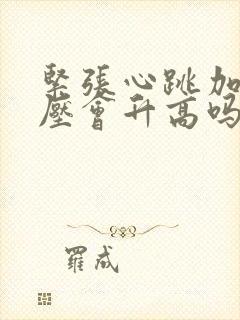 緊張心跳加
壓會升高吗
羅成